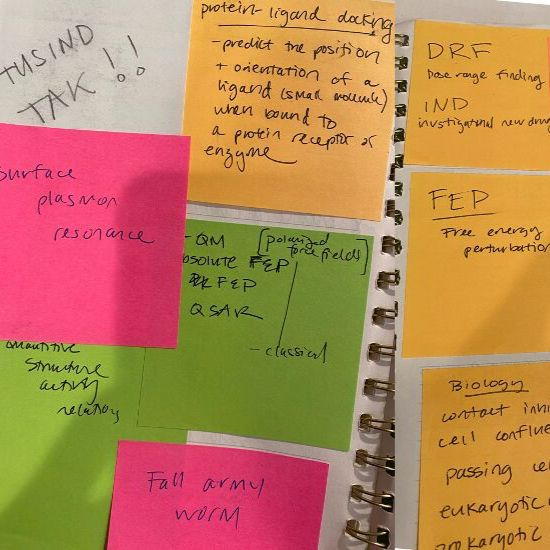 TUSIND
TAK!!
protein-ligand docking
- predict the position
+ orientation of a
ligand (small molecule)
when bound to
a protein receptor or
enzyme
surface
plasmon
resonance
- QM [polarized
force fields]
absolute FEP
FEP
QSAR
- classical
quantitive
Structure
activity
relation
Fall army
worm
DRF
Dose range finding
IND
investigational new drug
FEP
Free energy
perturbation
Biology
contact inhi
cell conflue
passing ce
eukaryotic
prokaryotic